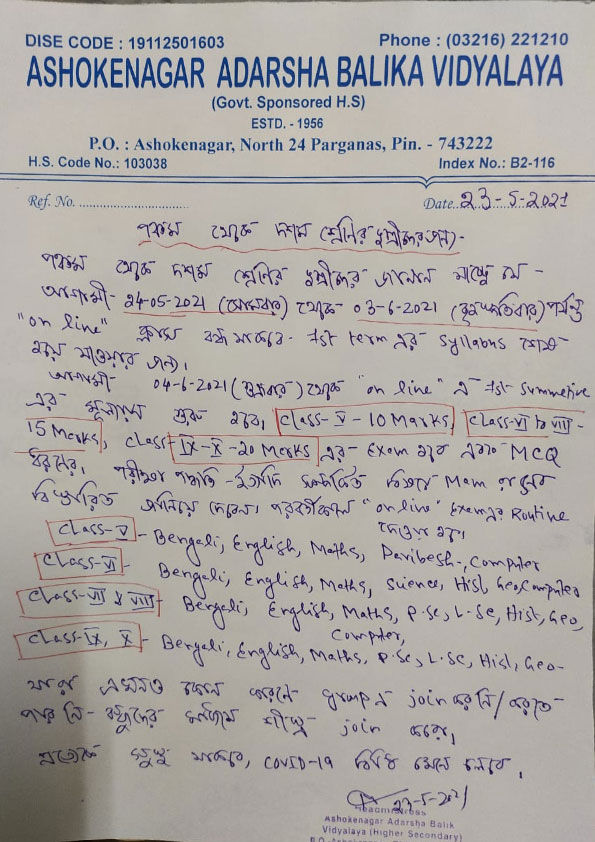 DISE CODE : 19112501603 Phone : (03216) 221210
ASHOKENAGAR ADARSHA BALIKA VIDYALAYA
(Govt. Sponsored H.S)
ESTD. - 1956
P.O. : Ashokenagar, North 24 Parganas, Pin. - 743222
H.S. Code No.: 103038 Index No.: B2-116
Ref. No. Date. 23-5-2021
পঞ্চম থেকে দশম শ্রেণির ছাত্রীদের জন্য-
পঞ্চম থেকে দশম শ্রেণির ছাত্রীদের জানানো যাচ্ছে যে -
আগামী- 24-05-2021 (সোমবার) থেকে 03-6-2021 (বৃহস্পতিবার) পর্যন্ত
"on line" ক্লাস বন্ধ থাকবে- 1st term এর syllabus শেষ
হয়ে যাওয়ার জন্য।
আগামী 04-6-2021 (শুক্রবার) থেকে "on line" এ 1st Summetive
এর মূল্যায়ন শুরু হবে। class-V-10 Marks, class-VI to VIII-
15 Marks, class-IX-X-20 Marks এর- Exam হবে এবং MCQ
ধরনের। পরীক্ষা পদ্ধতি -ইত্যাদি সম্পর্কিত বিষয়ে Mam রা
বিস্তারিত জানিয়ে দেবেন। পরবর্তীকালে "on line" Exam এর Routine
দেওয়া হবে।
class-V - Bengali, English, Maths, Paribesh-, Computer
class-VI - Bengali, English, Maths, Science, Hist, Geo, Computer
class-VII & VIII - Bengali, English, Maths, P.Sc, L.Sc, Hist, Geo,
Computer,
class-IX, X - Bengali, English, Maths, P.Sc, L.Sc, Hist, Geo-
যারা এখনও কোন কারণে group এ join কর নি/করতে
পার নি- বন্ধুদের মাধ্যমে শীঘ্র join করো।
প্রত্যেকে সুস্থ থাকবে, COVID-19 বিধি মেনে চলবে।
23-5-2021
Headmistress
Ashokenagar Adarsha Balik
Vidyalaya (Higher Secondary)